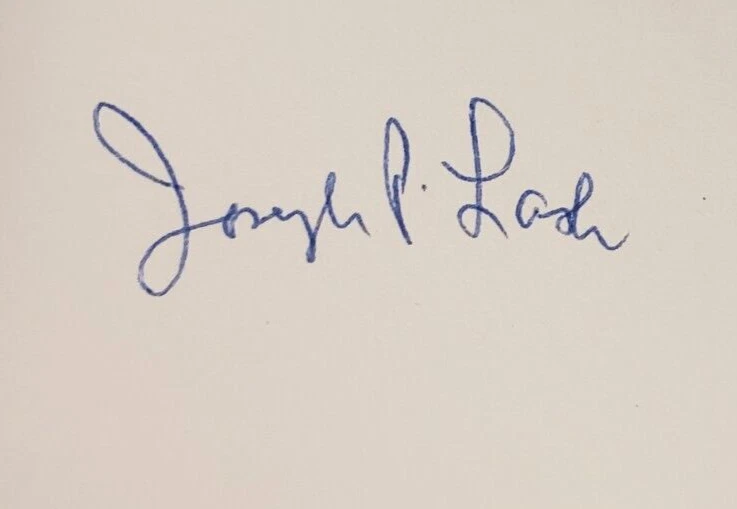 Joseph P. Lash